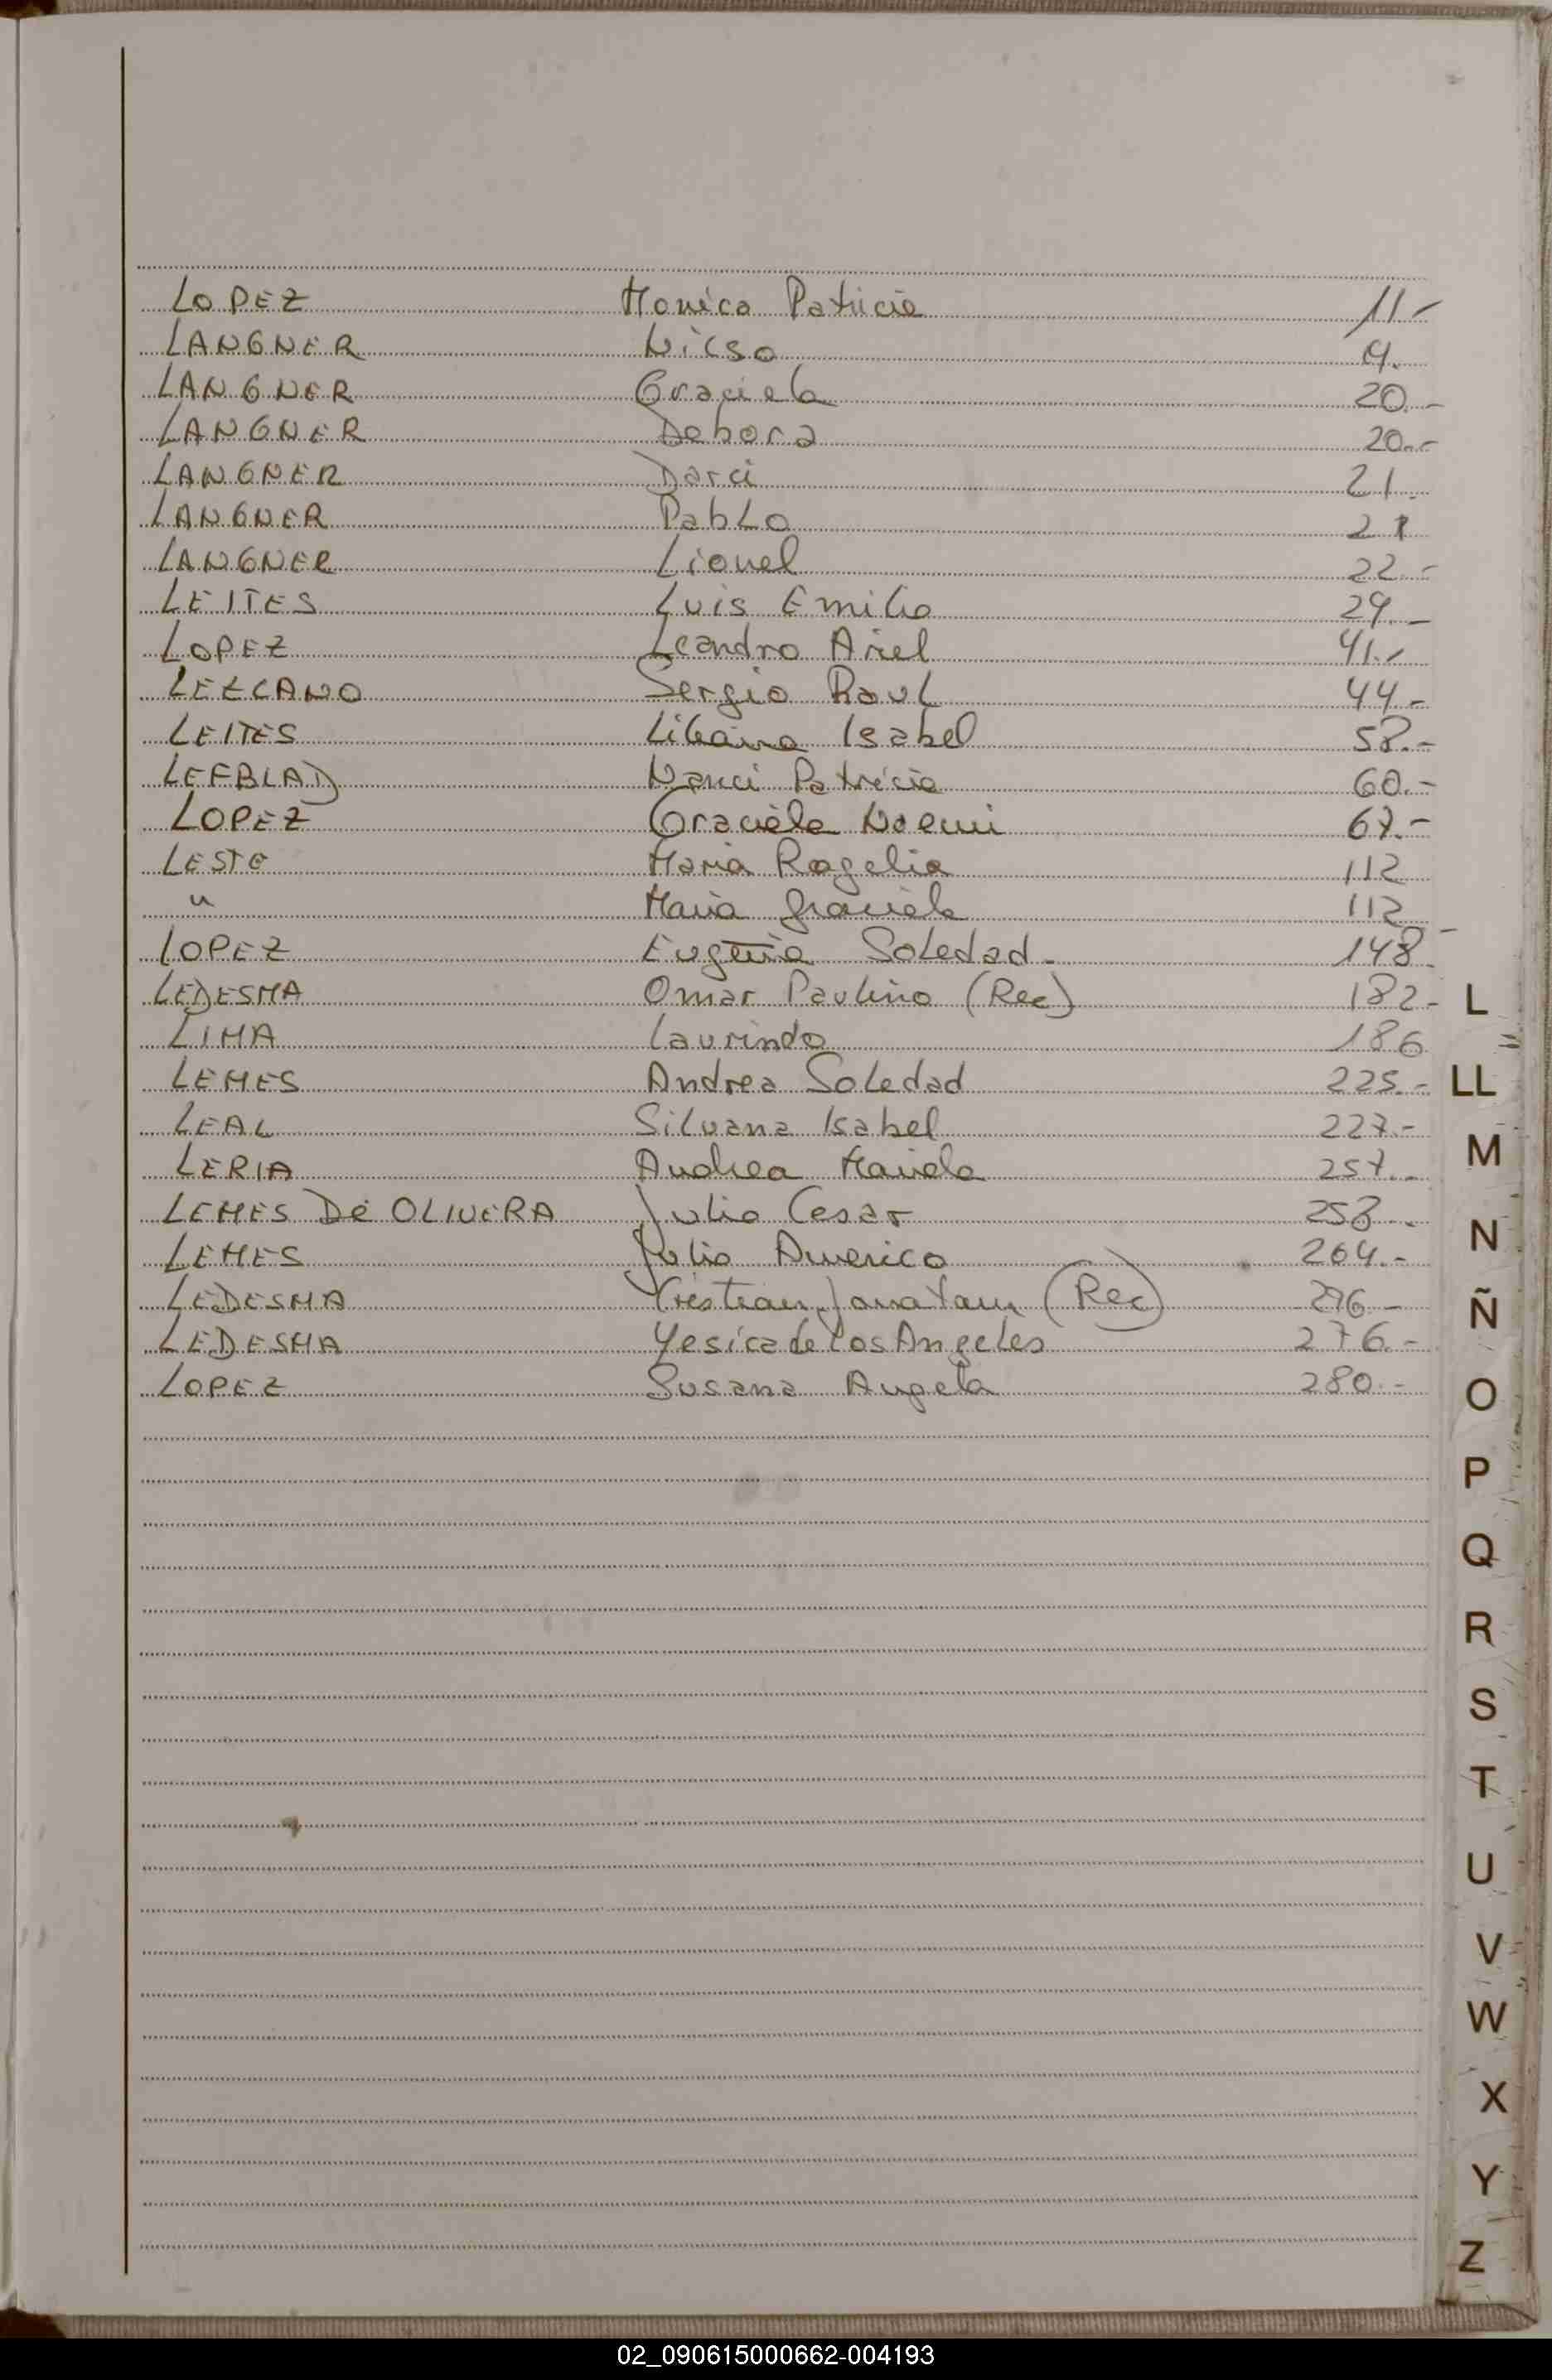 LOPEZ Monica Patricia 11.-
LANGNER Nilso 19.
LANGNER Graciela 20.-
LANGNER Debora 20.-
LANGNER Darci 21.
LANGNER Pablo 21
LANGNER Lionel 22.-
LEITES Luis Emilio 29.-
LOPEZ Leandro Ariel 41.-
LEZCANO Sergio Raul 44.-
LEITES Liliana Isabel 58.-
LEFBLAD Nanci Patricia 60.-
LOPEZ Graciela Noemi 67.-
LESTE Maria Rogelia 112
" Maria Graciela 112
LOPEZ Eugenia Soledad. 148.-
LEDESMA Omar Paulino (Rec) 182.-
LIMA Laurindo 186
LEMES Andrea Soledad 225.-
LEAL Silvana Isabel 227.-
LERIA Andrea Mariela 257.-
LEMES De OLIVERA Julio Cesar 258.-
LEMES Julio Americo 264.-
LEDESMA Cristian Jonatam (Rec) 276.-
LEDESMA Yesica de Los Angeles 276.-
LOPEZ Susana Angela 280.-
L
LL
M
N
Ñ
O
P
Q
R
S
T
U
V
W
X
Y
Z
02_090615000662-004193